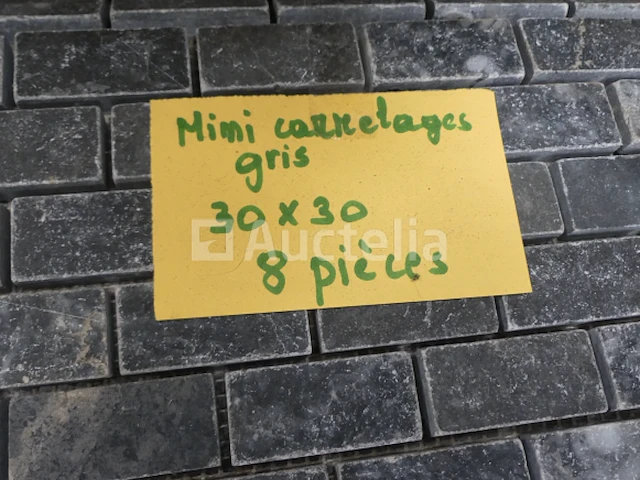 Mimi carrelages
gris
30 x 30
Auctelia
8 pièces